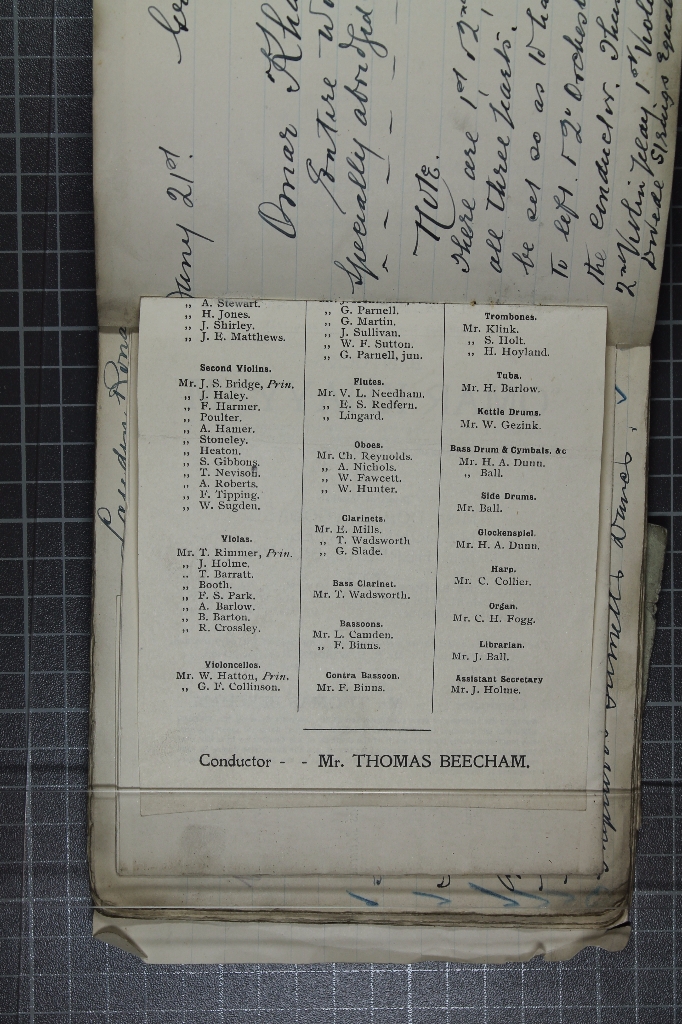 Jany 21st.
Omar Kha
Entire Wo
Specially abridged
Note.
There are 1st & 2nd
all three parts.
be set so as to ha
to left. & 2d Orchest
the conductor.
2nd Violin play 1st Viol
Divide Strings Equa
„ A. Stewart.
„ H. Jones.
„ J. Shirley.
„ J. E. Matthews.
Second Violins.
Mr. J. S. Bridge, Prin.
„ J. Haley.
„ F. Harmer.
„ Poulter.
„ A. Hamer.
„ Stoneley.
„ Heaton.
„ S. Gibbons.
„ T. Nevison.
„ A. Roberts.
„ F. Tipping.
„ W. Sugden.
Violas.
Mr. T. Rimmer, Prin.
„ J. Holme.
„ T. Barratt.
„ Booth.
„ F. S. Park.
„ A. Barlow.
„ B. Barton.
„ R. Crossley.
Violoncellos.
Mr. W. Hatton, Prin.
„ G. F. Collinson.
„ G. Parnell.
„ G. Martin.
„ J. Sullivan.
„ W. F. Sutton.
„ G. Parnell, jun.
Flutes.
Mr. V. L. Needham.
„ E. S. Redfern.
„ Lingard.
Oboes.
Mr. Ch. Reynolds.
„ A. Nichols.
„ W. Fawcett.
„ W. Hunter.
Clarinets.
Mr. E. Mills.
„ T. Wadsworth
„ G. Slade.
Bass Clarinet.
Mr. T. Wadsworth.
Bassoons.
Mr. L. Camden.
„ F. Binns.
Contra Bassoon.
Mr. F. Binns.
Trombones.
Mr. Klink.
„ S. Holt.
„ H. Hoyland.
Tuba.
Mr. H. Barlow.
Kettle Drums.
Mr. W. Gezink.
Bass Drum & Cymbals, &c
Mr. H. A. Dunn.
„ Ball.
Side Drums.
Mr. Ball.
Glockenspiel.
Mr. H. A. Dunn.
Harp.
Mr. C. Collier.
Organ.
Mr. C. H. Fogg.
Librarian.
Mr. J. Ball.
Assistant Secretary
Mr. J. Holme.
Conductor - - Mr. THOMAS BEECHAM.